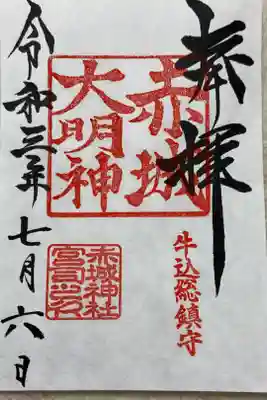 奉拝
牛込総鎮守
赤城
大明神
赤城神社
宮司之印
令和三年七月六日